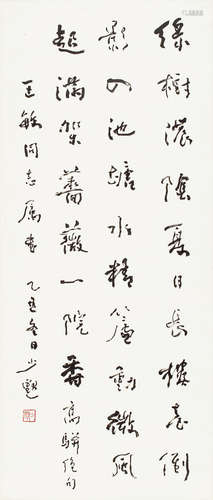 綠樹濃陰夏日長樓臺倒
影入池塘水精簾動微風
起滿架薔薇一院香 高駢絕句
敏同志属書 乙丑冬日少